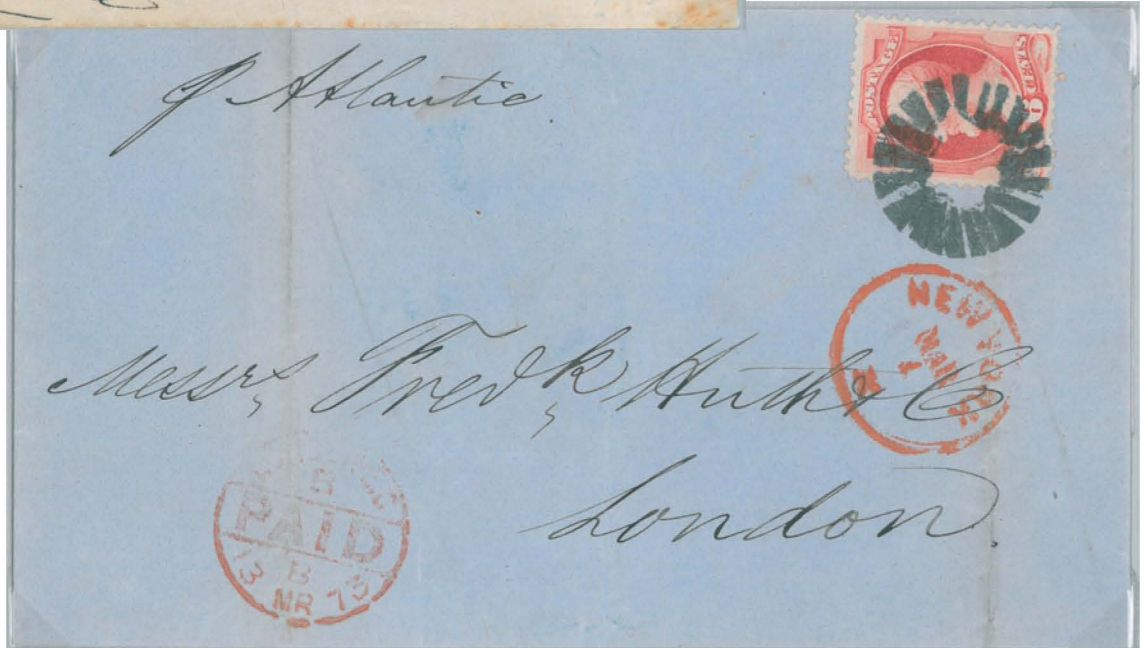 p Atlantic
POSTAGE
CENTS
NEW YORK
MAR
1
Messrs Fredk Huth & Co
London.
PAID
B
13 MR 73